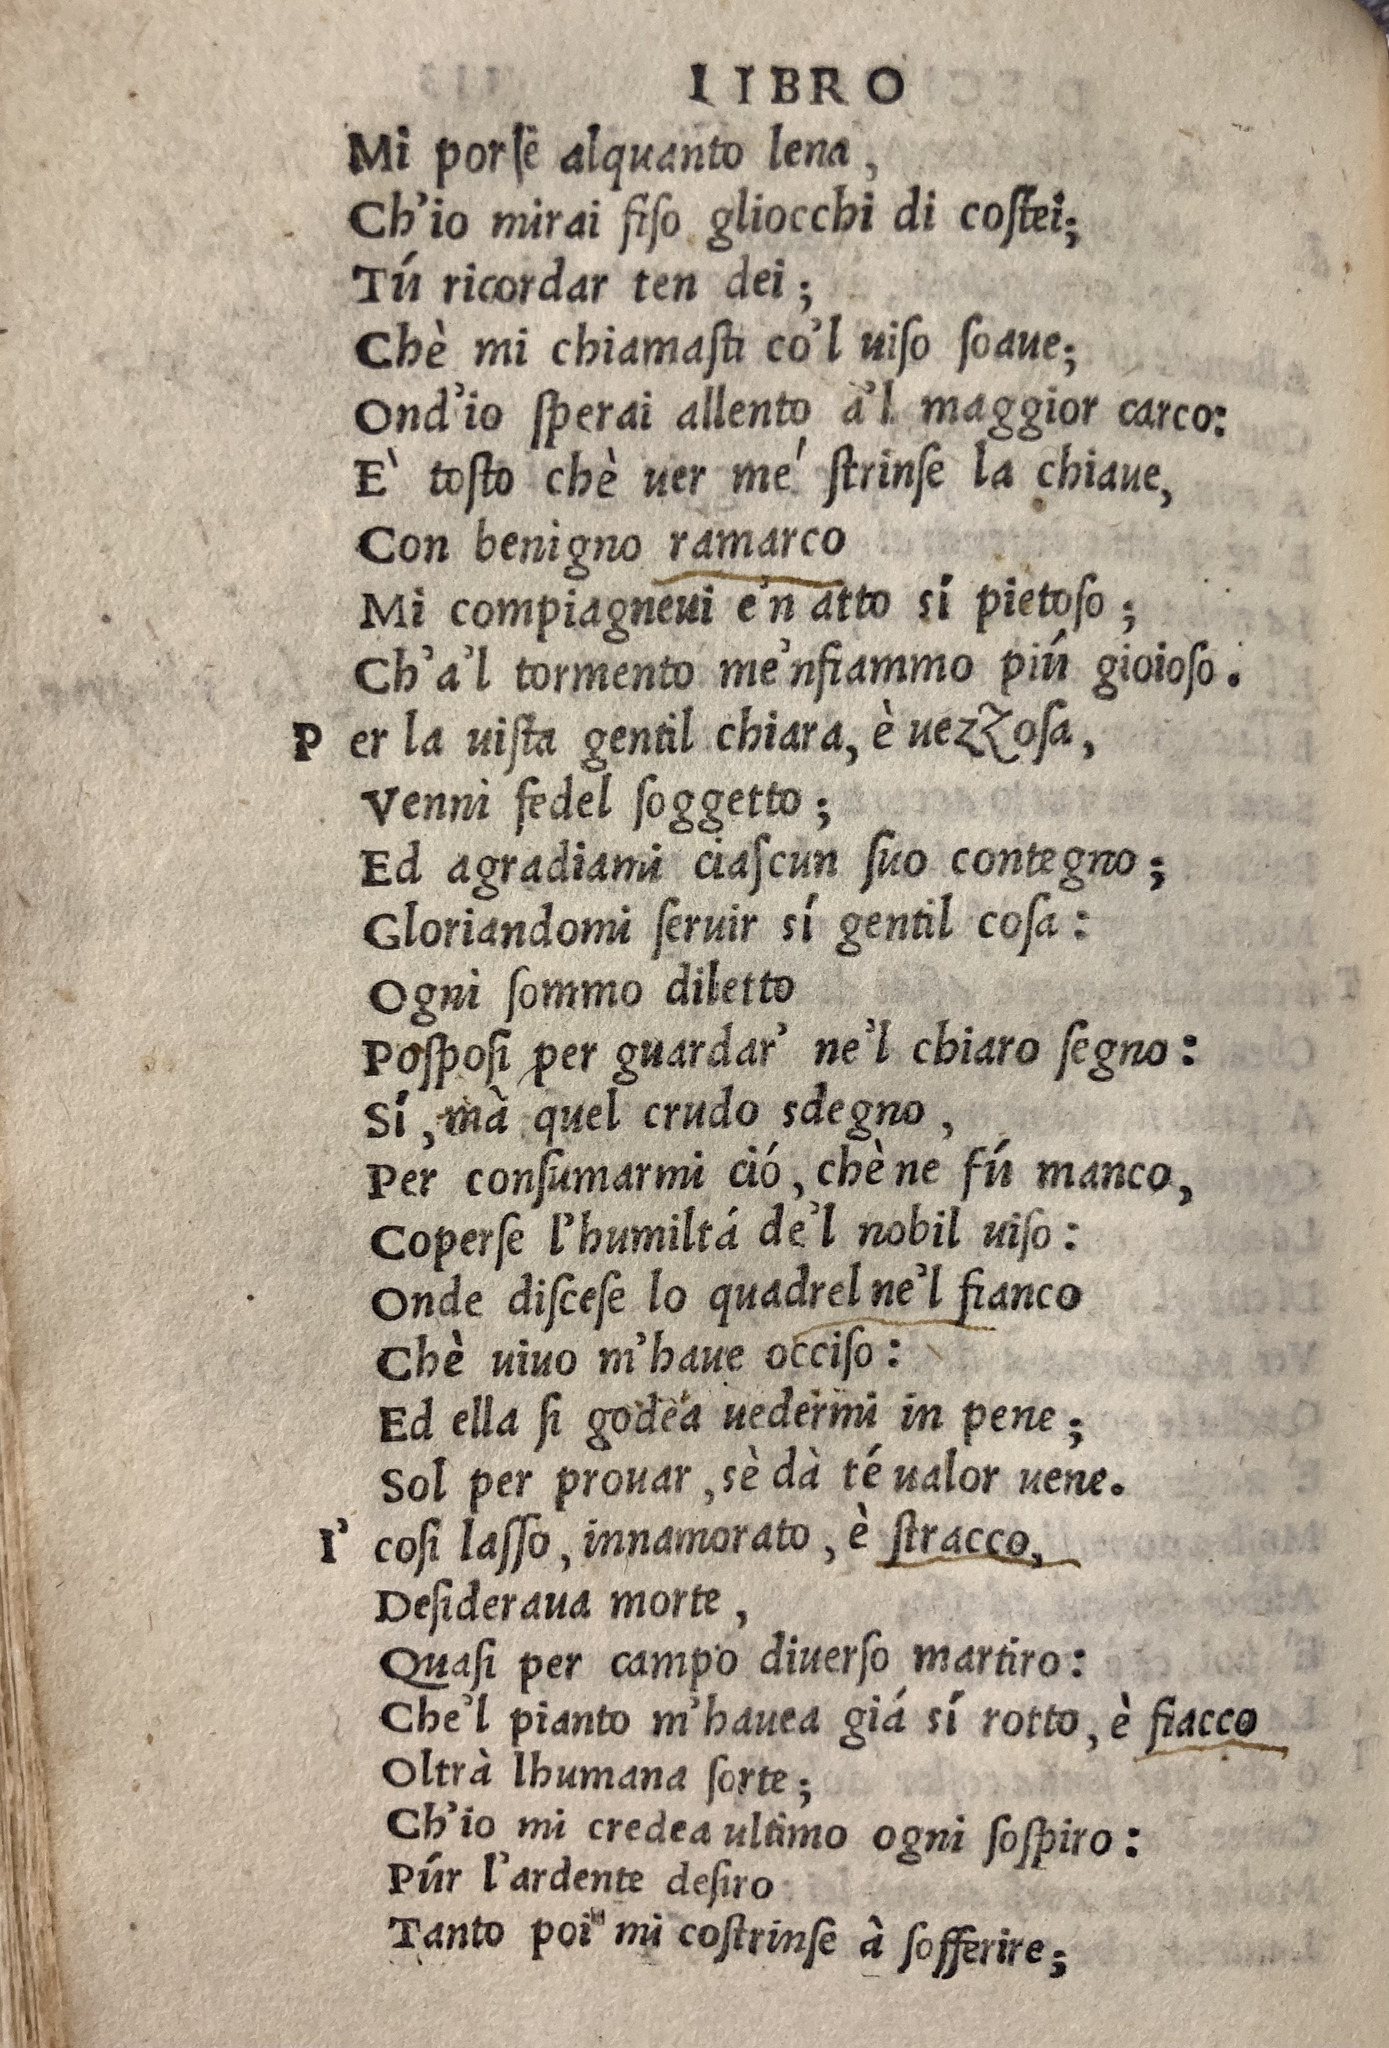 LIBRO
Mi porſe alquanto lena,
Ch'io mirai fiſo gliocchi di coſtei;
Tú ricordar ten dei;
Chè mi chiamaſti co'l uiſo ſoaue;
Ond'io ſperai allento à'l maggior carco:
E' toſto chè uer me' ſtrinſe la chiaue,
Con benigno ramarco
Mi compiagneui e'n atto sí pietoſo;
Ch'a'l tormento me'nfiammo piú gioioſo.
Per la uiſta gentil chiara, è uezzoſa,
Venni fedel ſoggetto;
Ed agradiami ciaſcun ſuo contegno;
Gloriandomi ſeruir sí gentil coſa:
Ogni ſommo diletto
Poſpoſi per guardar' ne'l chiaro ſegno:
Sí, mà quel crudo sdegno,
Per conſumarmi ció, chè ne fú manco,
Coperſe l'humiltá de'l nobil uiſo:
Onde diſceſe lo quadrel ne'l fianco
Chè uiuo m'haue occiſo:
Ed ella ſi godea uedermi in pene;
Sol per prouar, sè dà té ualor uene.
I' coſi laſſo, innamorato, è ſtracco,
Deſideraua morte,
Quaſi per campo diuerſo martiro:
Che'l pianto m'hauea giá sí rotto, è fiacco
Oltrà lhumana ſorte;
Ch'io mi credea ultimo ogni ſoſpiro:
Púr l'ardente deſiro
Tanto poi mi coſtrinſe à ſofferire;